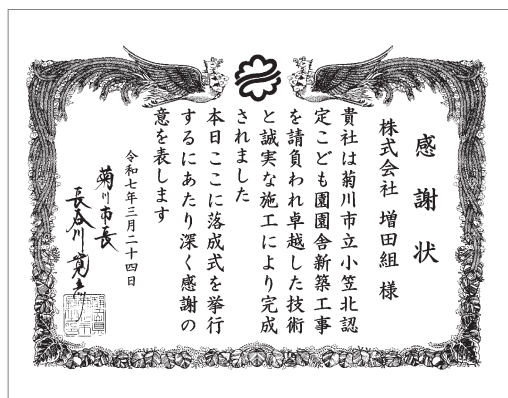 感謝状
株式会社 増田組 様
貴社は菊川市立小笠北認
定こども園園舎新築工事
を請負われ卓越した技術
と誠実な施工により完成
されました
本日ここに落成式を挙行
するにあたり深く感謝の
意を表します
令和七年三月二十四日
菊川市長
長谷川寛彦